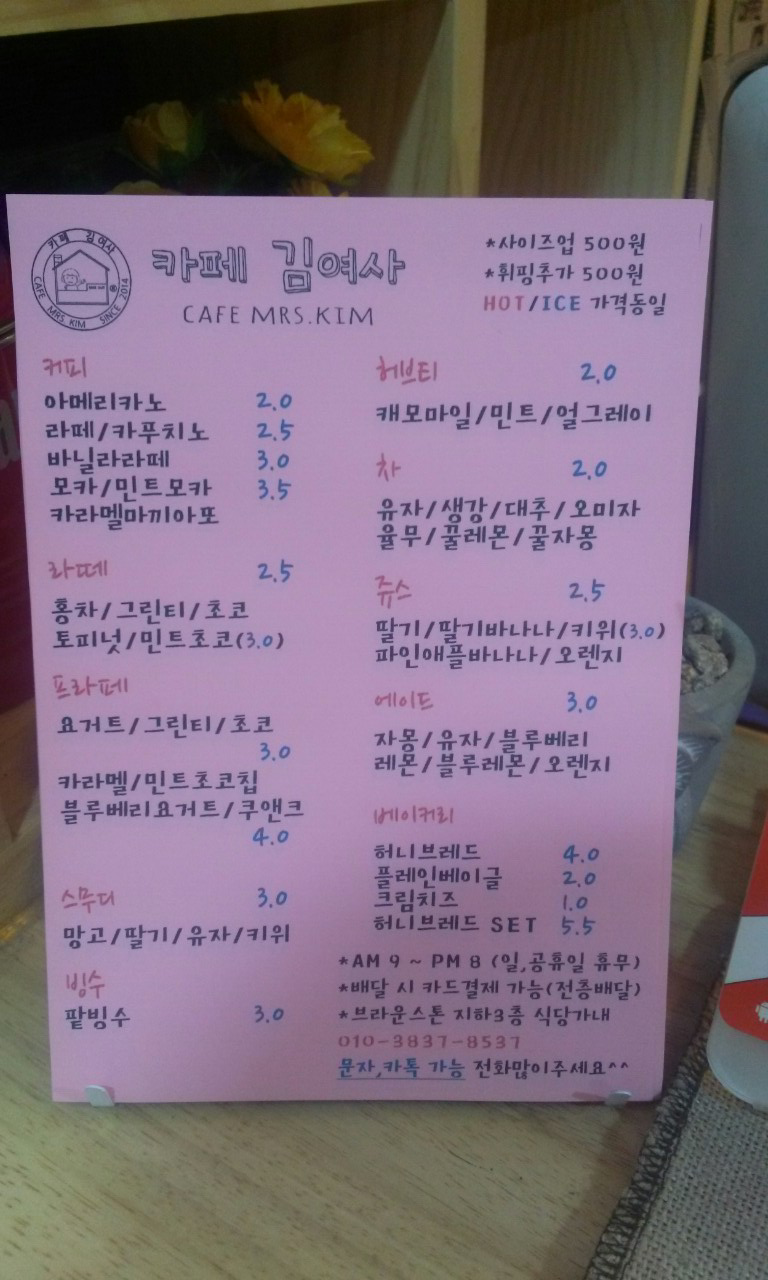 카페 김여사
CAFE MRS. KIM SINCE 2014
카페 김여사
CAFE MRS.KIM
*사이즈업 500원
*휘핑추가 500원
HOT/ICE 가격동일
커피
아메리카노 2.0
라떼/카푸치노 2.5
바닐라라떼 3.0
모카/민트모카 3.5
카라멜마끼아또
라떼 2.5
홍차/그린티/초코
토피넛/민트초코(3.0)
프라페
요거트/그린티/초코
3.0
카라멜/민트초코칩
블루베리요거트/쿠앤크
4.0
스무디 3.0
망고/딸기/유자/키위
빙수
팥빙수 3.0
허브티 2.0
캐모마일/민트/얼그레이
차 2.0
유자/생강/대추/오미자
율무/꿀레몬/꿀자몽
쥬스 2.5
딸기/딸기바나나/키위(3.0)
파인애플바나나/오렌지
에이드 3.0
자몽/유자/블루베리
레몬/블루레몬/오렌지
베이커리
허니브레드 4.0
플레인베이글 2.0
크림치즈 1.0
허니브레드 SET 5.5
*AM 9 ~ PM 8 (일,공휴일 휴무)
*배달 시 카드결제 가능(전층배달)
*브라운스톤 지하3층 식당가내
010-3837-8537
문자,카톡 가능 전화많이주세요^^